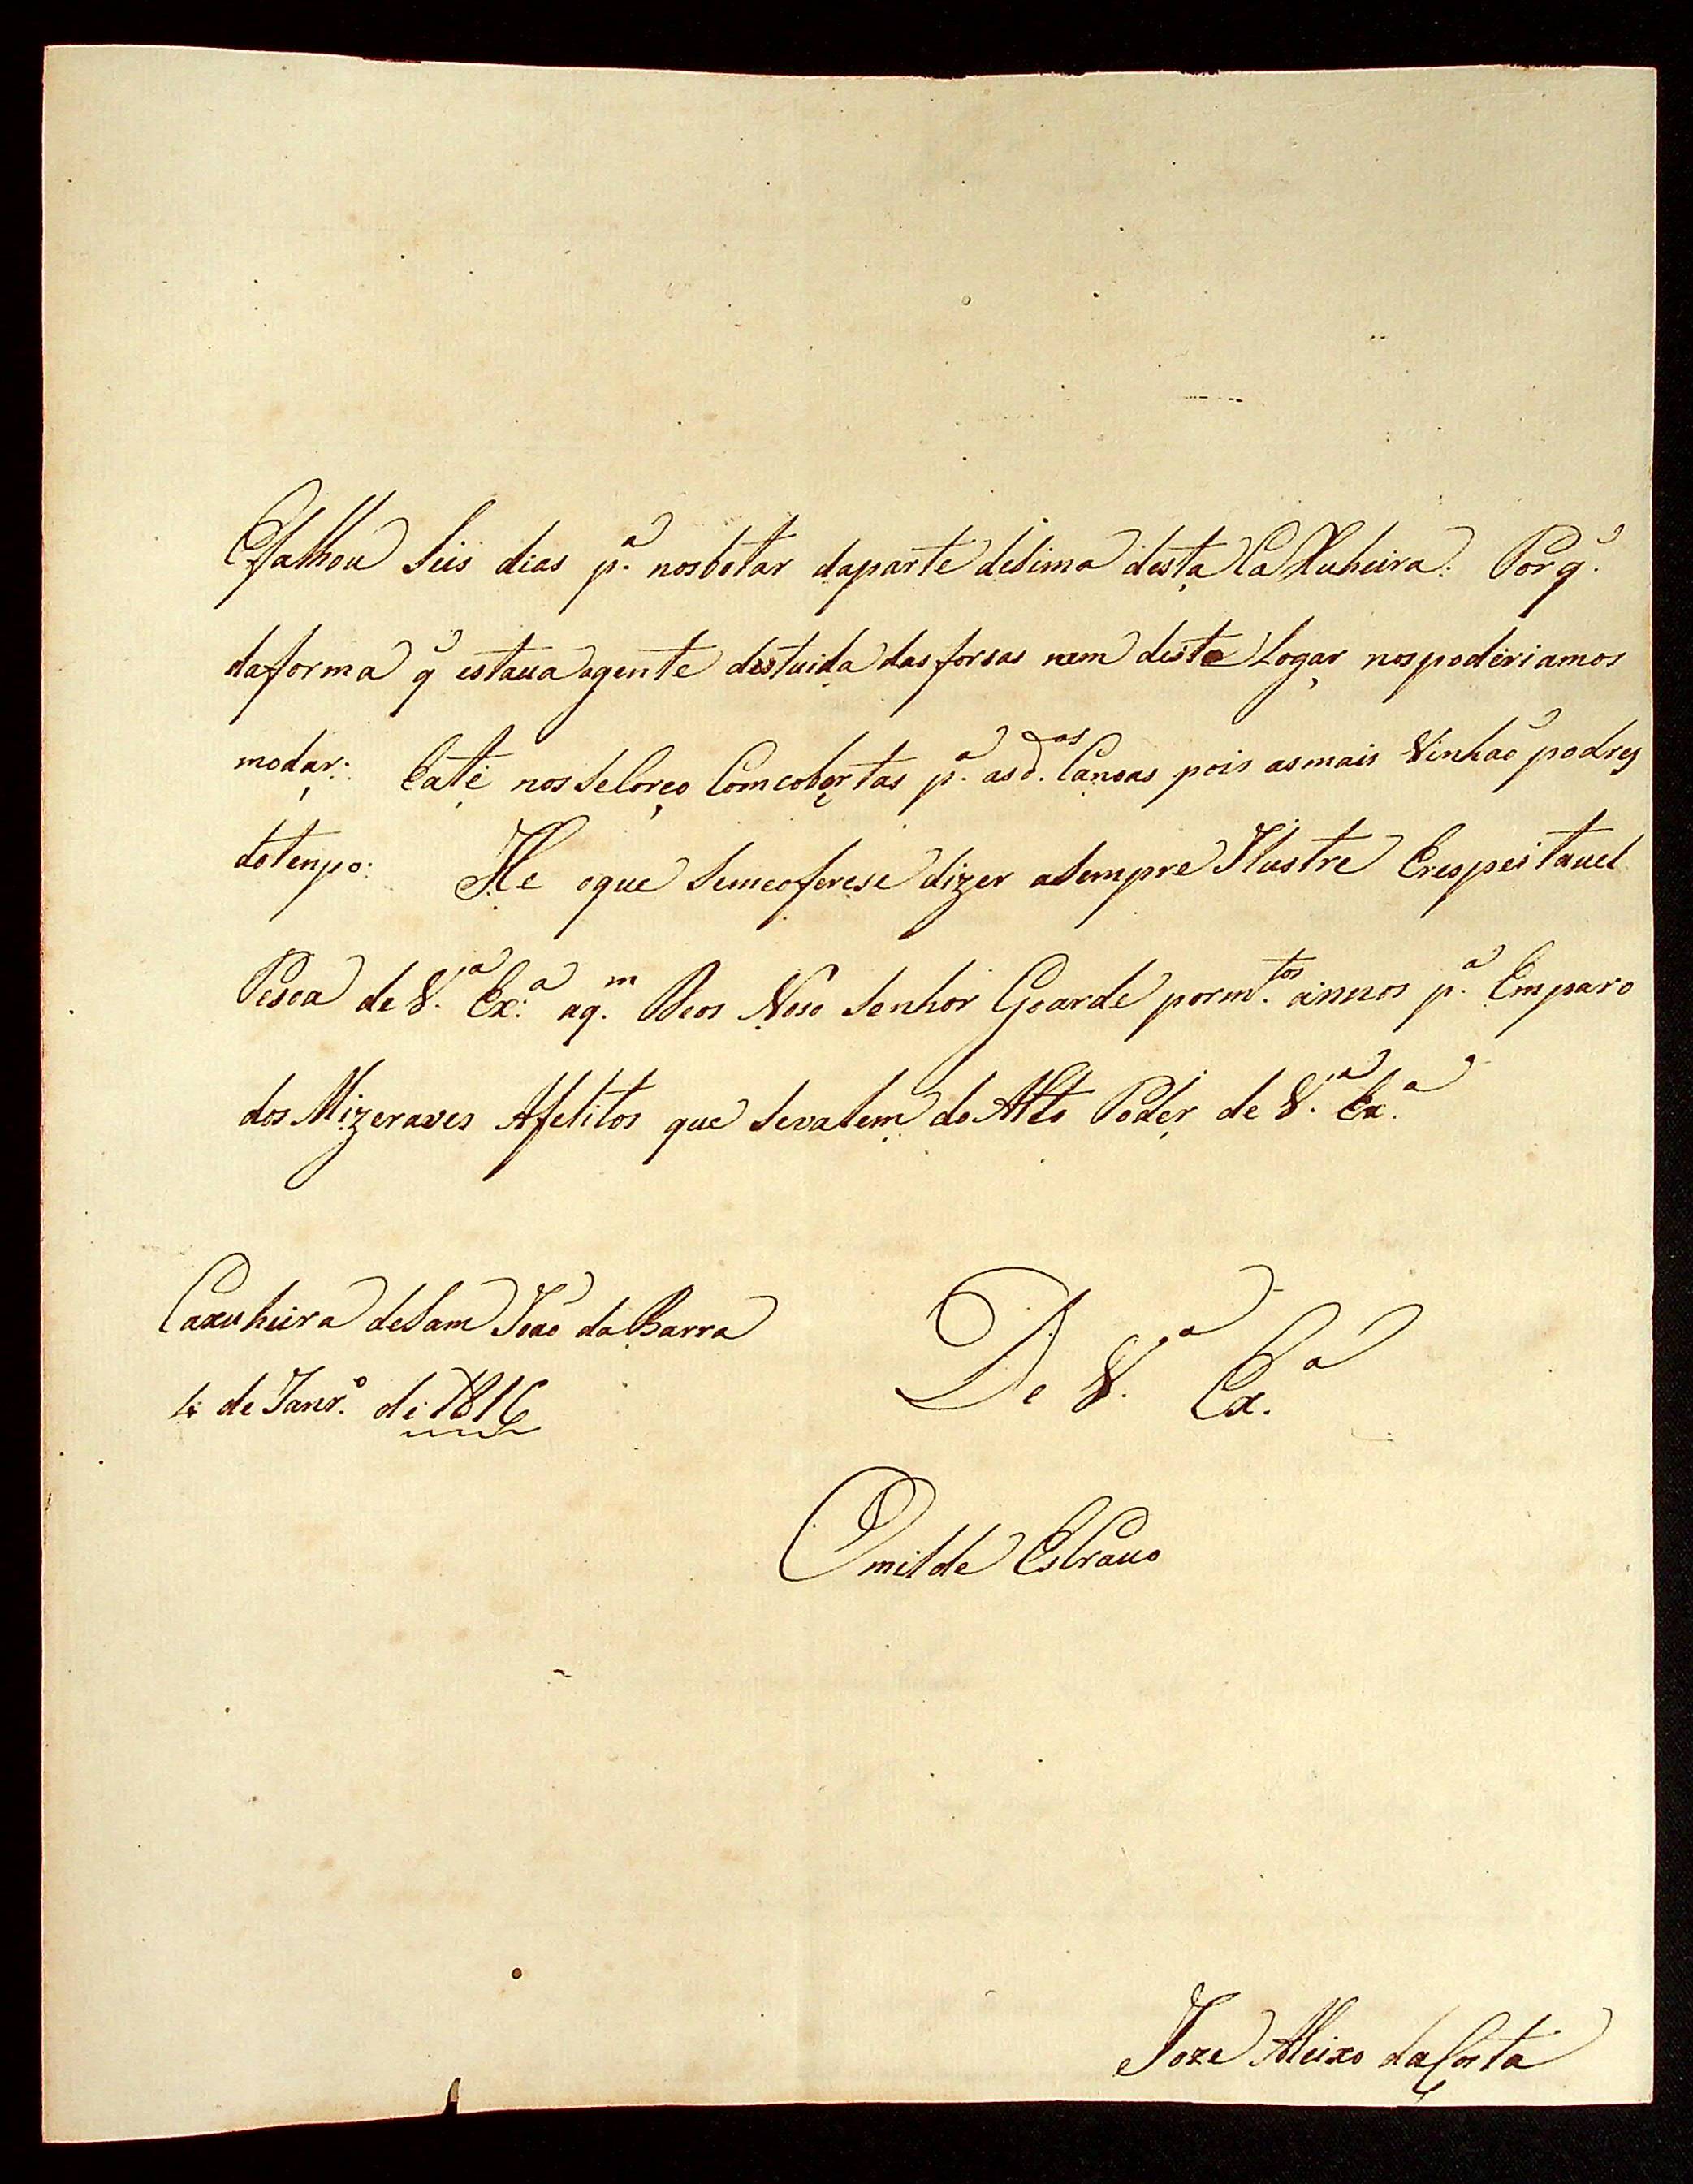 Efalhou Seis dias p.ª nosbotar daparte deSima desta CaXuheira. Porq̃.
daforma q̃ estaua agente destuida das forsas nem deste Logar nospoderiamos
modar: Eaté nos Selorço Comcobertas p.ª asd.as Canoas pois asmais Vinhaõ podres
dotenpo: He oque Semeoferese dizer aSempre Ilustre Erespeitauel
Pesoa de V.ª Ex.ª aq.m Deos Noso Senhor Goarde porm.tos annos p.ª Emparo
dos Mizeraves Afelitos que Sevalem do Alto Poder de V.ª Ex.ª
Caxuheira deSam Joaõ da Barra
4 de Janr.º de 1816
De V.ª Ex.ª
Omilde EsCrauo
Joze Aleixo da Costa